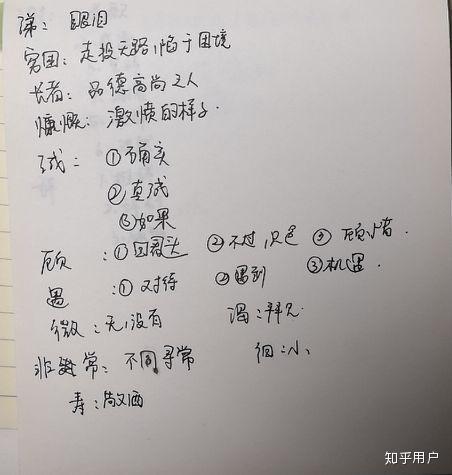 涕：眼泪
穷困：走投无路，陷于困境
长者：品德高尚之人
慷慨：激愤的样子.
诚：①确实
②真诚
③如果
顾：①回头 ②不过，只是 ③
遇：①对待 ②遇到 ③机遇.
微：无，没有 谒：拜见.
非常：不同寻常 细：小、
寿：敬酒
知乎用户